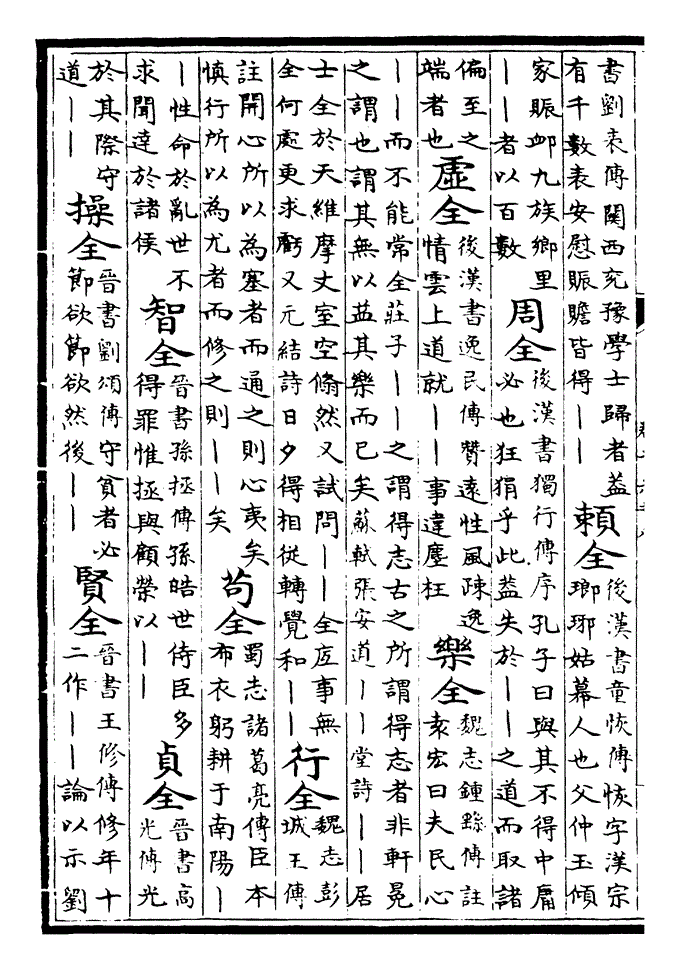 書劉表傳関西兖豫學士歸者益
有千數表安慰賑贍皆得｜｜
頼全
後漢書童恢傳恢字漢宗
瑯琊姑幕人也父仲玉傾
家賑卹九族鄉里
｜｜者以百數
周全
後漢書獨行傳序孔子曰與其不得中庸
必也狂狷乎此益失於｜｜之道而取諸
偏至之
端者也
虛全
後漢書逸民傳贊遠性風踈逸
情雲上道就｜｜事違塵枉
樂全
魏志鍾繇傳註
袁宏曰夫民心
｜｜而不能常全莊子｜｜之謂得志古之所謂得志者非軒冕
之謂也謂其無以益其樂而已矣蘇軾張安道｜｜堂詩｜｜居
士全於天維摩丈室空翛然又試問｜｜全底事無
全何處更求虧又元結詩日夕得相從轉覺和｜｜
行全
魏志彭
城王傳
註開心所以為塞者而通之則心夷矣
慎行所以為尤者而修之則｜｜矣
茍全
蜀志諸葛亮傳臣本
布衣躬耕于南陽｜
｜性命於亂世不
求聞達於諸侯
智全
晉書孫拯傳孫皓世侍臣多
得罪惟拯與顧榮以｜｜
貞全
晉書高
光傳光
於其際守
道｜｜
操全
晉書劉頌傳守貧者必
節欲節欲然後｜｜
賢全
晉書王修傳修年十
二作｜｜論以示劉